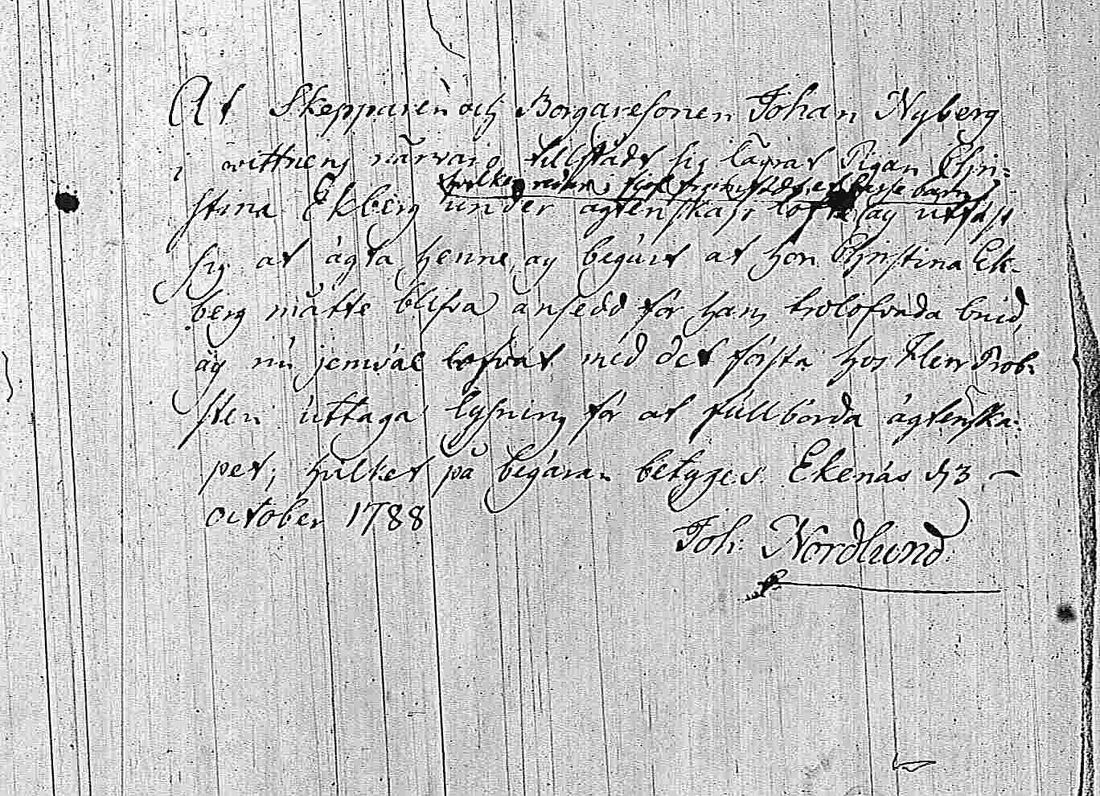 At Skepparen och Borgaresonen Johan Nyberg
i wittnens närvaro tillstådt sig lägrat Pigan Chri-
stina Ekberg under ägtenskaps löfte, ock utfäst
sig at ägta henne, ock begärt at hon Christina Ek-
berg måtte blifva ansedd för hans trolofvada brud,
ock nu jemväl lofvat med det första hos Herr Prob-
sten uttaga lysning för at fullborda ägtenska-
pet; hvilket på begäran betyges. Ekenäs d 3
october 1788
Joh: Nordlund.